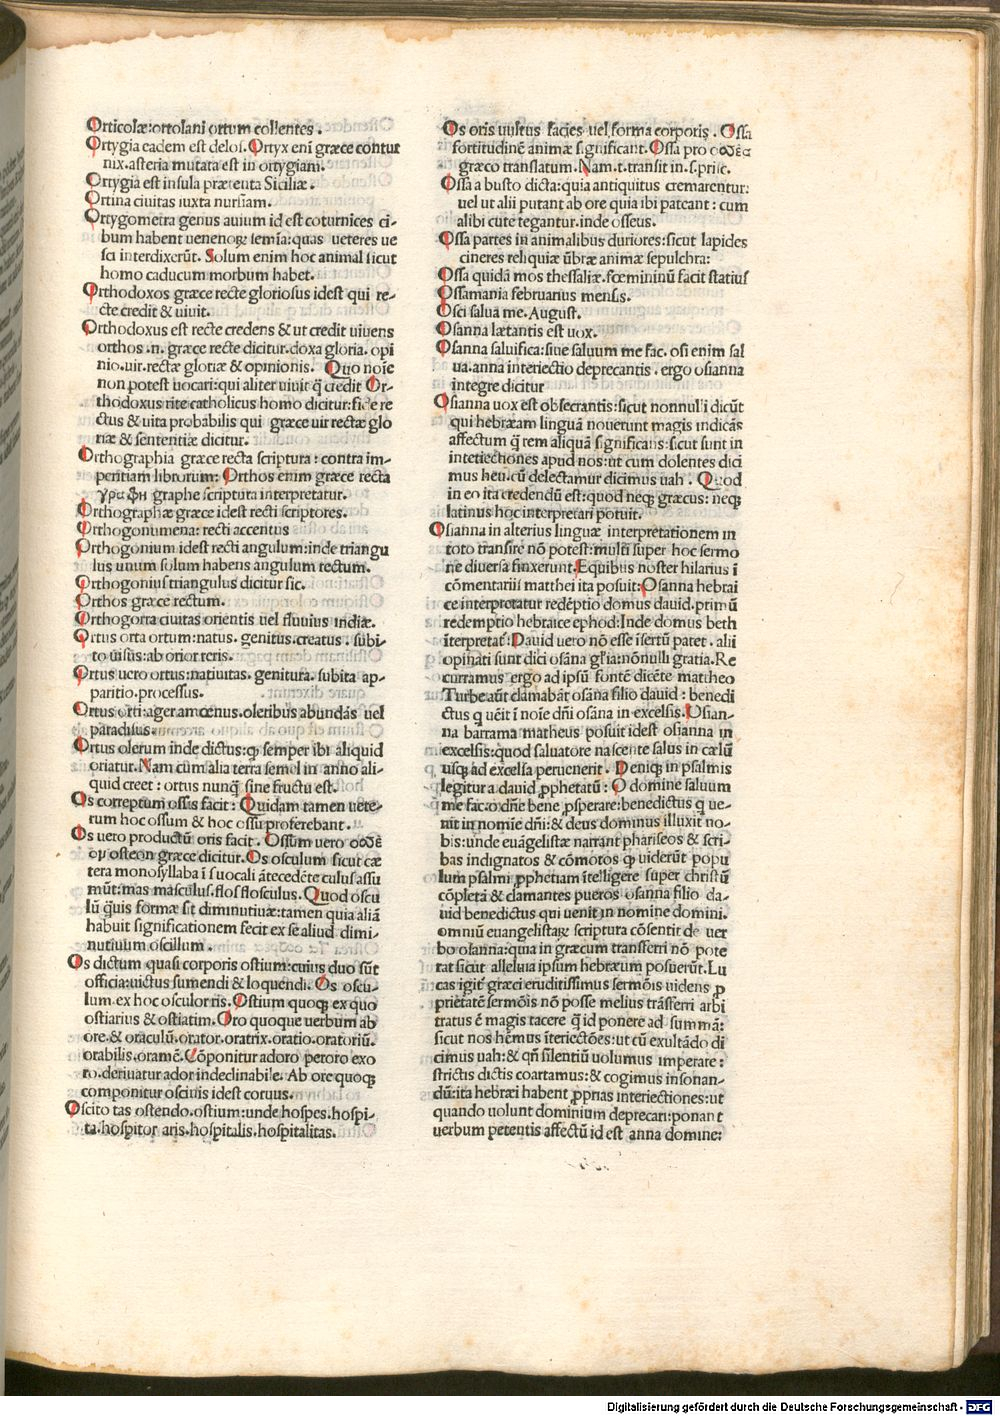 Orticolæ:ortolani ortum collentes.
Ortygia eadem est delos. Ortyx eni græce contur
nix.asteria mutata est in ortygiam.
Ortygia est insula præ tenta Siciliæ.
Ortina ciuitas iuxta nursiam.
Ortygometra genus auium id est coturnices ci-
bum habent uenenoꝝ semīa:quas ueteres ue
sci interdixerūt. Solum enim hoc animal sicut
homo caducum morbum habet.
Orthodoxos græce recte gloriosus idest qui re-
cte credit & uiuit.
Orthodoxus est recte credens & ut credit uiuens
orthos .n. græce recte dicitur.doxa gloria. opi
nio.uir.rectæ gloriæ & opinionis. Quo noīe
non potest uocari:qui aliter uiuit q̄ credit Or-
thodoxus rite catholicus homo dicitur:fide re
ctus & uita probabilis qui græce uir rectæ glo
riæ & sententiæ dicitur.
Orthographia græce recta scriptura: contra im-
peritiam librorum: Orthos enim græce recta
γραφη graphe scriptura interpretatur.
Orthographiæ græce idest recti scriptores.
Orthogonumena: recti accentus
Orthogonium idest recti angulum:inde triangu
lus unum solum habens angulum rectum.
Orthogonius triangulus dicitur sic.
Orthos græce rectum.
Orthogorra ciuitas orientis uel fluuius indiæ.
Ortus orta ortum:natus. genitus.creatus. subi-
to uisus:ab orior reris.
Ortus uero ortus:natiuitas. genitura. subita ap-
paritio.processus.
Ortus orti:ager amœnus.oleribus abundās uel
paradisus.
Ortus olerum inde dictus:ꝙ semper ibi aliquid
oriatur. Nam cūm alia terra semel in anno ali-
quid creet: ortus nunq̄ sine fructu est.
Os correptum ossis facit: Quidam tamen uete-
rum hoc ossum & hoc ossu proferebant.
Os uero productū oris facit. Ossum uero
osteon græce dicitur. Os osculum sicut cæ
tera monosyllaba ī s uocali āntecedēte culus assu
mūt:mas masculus.flos flosculus. Quod oscu
lū q̄uis formæ sit diminutiuæ:tamen quia aliā
habuit significationem fecit ex se aliud dimi-
nutiuum oscillum.
Os dictum quasi corporis ostium:cuius duo sūt
officia:uictus sumendi & loquendi. Os oscu-
lum.ex hoc osculor ris. Ostium quoqꝫ ex quo
ostiarius & ostiatim. Oro quoque uerbum ab
ore.& oraculū.orator.oratrix.oratio.oratoriū.
orabilis.oramē. Cōponitur adoro peroro exo
ro.deriuatur ador indeclinabile. Ab ore quoqꝫ
componitur osciuis idest coruus.
Oscito tas ostendo.ostium:unde hospes.hospi-
ta.hospitor aris.hospitalis.hospitalitas.
Os oris uultus facies uel forma corporis. Ossa
fortitudinē animæ significant. Ossa pro
græco translatum. Nam.t.transit in.s.prisc.
Ossa a busto dicta:quia antiquitus cremarentur:
uel ut alii putant ab ore quia ibi pateant: cum
alibi cute tegantur.inde osseus.
Ossa partes in animalibus duriores:sicut lapides
cineres reliquiæ ūbræ animæ sepulchra:
Ossa quidā mos thessaliæ.fœmininū facit statius
Ossamania februarius mensis.
Osci salua me. August.
Osanna lætantis est uox.
Osanna saluifica:siue saluum me fac. osi enim sal
ua.anna interiectio deprecantis. ergo osianna
integre dicitur
Osianna uox est obsecrantis:sicut nonnulli dicūt
qui hebræam linguā nouerunt magis indicās
affectum q̄ rem aliquā significans:sicut sunt in
interiectiones apud nos:ut cum dolentes dici
mus heu.cū delectamur dicimus uah. Quod
in eo ita credendū est:quod neqꝫ græcus: neqꝫ
latinus hoc interpretari potuit.
Osianna in alterius linguæ interpretationem in
toto transire nō potest:multi super hoc sermo
ne diuersa finxerunt. Equibus noster hilarius ī
cōmentariis matthei ita posuit: Osanna hebrai
ce interpretatur redēptio domus dauid.primū
redemptio hebraice ephod:Inde domus beth
īterpretat᷑: Dauid uero nō esse īsertū patet. alii
opinati sunt dici osāna gl'ia:nōnulli gratia. Re
curramus ergo ad ipsū fontē dicēte mattheo
Turbe aūt clamabāt osāna filio dauid: benedi
ctus q uēit ī noīe dn̄i osāna in excelsis. Osian-
na barrama matheus posuit idest osianna in
excelsis:quod saluatore nascente salus in cælū
usqꝫ ad excelsa peruenerit. Deniqꝫ in psalmis
legitur a dauid ꝓphetatū: O domine saluum
me fac:o dn̄e bene ꝓsperare:benedictus q ue-
nit in nomīe dn̄i:& deus dominus illuxit no-
bis:unde euāgelistæ narrant phariseos & scri-
bas indignatos & cōmotos ꝙ uiderūt popu
lum psalmi ꝓphetiam ītelligere super christū
cōpletā & clamantes pueros osanna filio da-
uid benedictus qui uenit in nomine domini.
omniū euangelistaꝝ scriptura cōsentit de uer
bo osanna:quia in græcum transferri nō pote
rat sicut alleluia ipsum hebræum posuerūt. Lu
cas igit᷑ græci eruditissimus sermōis uidens ꝓ
prietatē sermōis nō posse melius trāsferri arbi
tratus ē magis tacere q̄ id ponere ad summā:
sicut nos hēmus īteriectōes:ut cū exultādo di
cimus uah:& qn̄ silentiū uolumus imperare:
strictis dictis coartamus:& cogimus insonan-
dū:ita hebræi habent ꝓprias interiectiones:ut
quando uolunt dominium deprecari:ponant
uerbum petentis affectū id est anna domine:
Digitalisierung gefördert durch die Deutsche Forschungsgemeinschaft - DFG